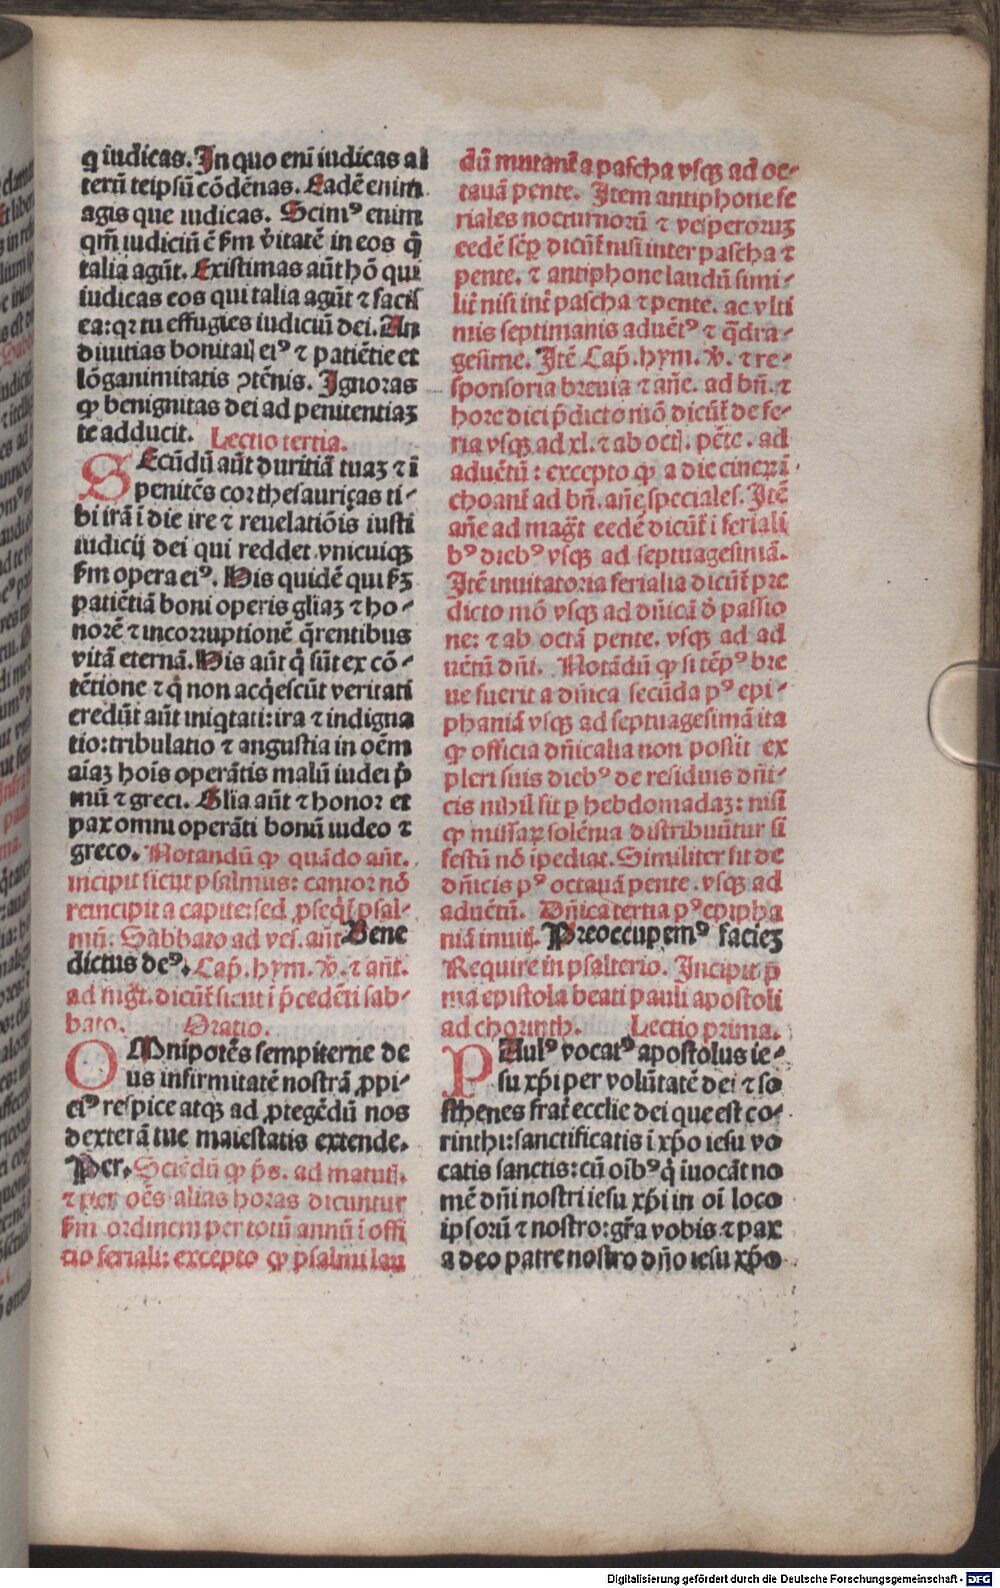 q iudicas. In quo eni͂ iudicas al
terũ teipsũ cõdẽnas. Eadẽ enim
agis que iudicas. Scimꝰ enim
qm̃ iudiciũ ẽ ẜm v̾itatẽ in eos q̃
talia agũt. Existimas aũt hõ qui
iudicas eos qui talia agũt ⁊ facis
ea: qꝛ tu effugies iudiciũ dei. An
diuitias bonitat eiꝰ ⁊ patiẽtie et
lõganimitatis ꝯtẽnis. Ignoras
ꝙ benignitas dei ad penitentiaꝫ
te adducit. Lectio tertia.
SEcũdũ aũt duritiã tuaꝫ ⁊ ĩ
penitẽs cor thesauriças ti-
bi irã ĩ die ire ⁊ reuelatiõis iusti
iudicij dei qui reddet vnicuiqꝫ
ẜm opera eiꝰ. His quidẽ qui ẜꝫ
patiẽtiã boni operis gliaꝫ ⁊ ho-
norẽ ⁊ incorruptionẽ q̃rentibus
vitã eternã. His aũt q̃ sũt ex cõ-
tẽtione ⁊ q̃ non acq̃escũt veritati
credũt aũt iniq̃tati: ira ⁊ indigna
tio: tribulatio ⁊ angustia in oẽm
aĩaꝫ hoĩs operãtis malũ iudei p̃
mũ ⁊ greci. Glia aũt ⁊ honoꝛ et
pax omni operãti bonũ iudeo ⁊
greco. Notandũ ꝙ quãdo añt.
incipit sicut psalmus: cantoꝛ nõ
reincipit a capite: sed ꝓseq̃t psal-
mũ. Sabbato ad ves. añt Bene
dictus deꝰ. Cap̃. hym. v̾. ⁊ añt.
ad mg̃t. dicũt̃ sicut ĩ p̃cedẽti sab-
bato. Oratio.
OMnipotẽs sempiterne de
us infirmitatẽ nostrã ꝓpi-
eiꝰ respice atqꝫ ad ꝓtegẽdũ nos
dexterã tue maiestatis extende.
Per. Sciẽdũ ꝙ p̃s. ad matut.
⁊ per oẽs alias horas dicuntur
ẜm ordinem per totũ annũ ĩ offi
cio feriali: excepto ꝙ psalmi lau
dũ mutant̃ a pascha vsqꝫ ad oc-
tauã pente. Item antiphone fe
riales nocturnorũ ⁊ vesperoruꝫ
eedẽ sẽꝑ dicũt̃ nisi inter pascha ⁊
pente. ⁊ antiphone laudũ simi-
lit̃ nisi int̃ pascha ⁊ pente. ac vlti
mis septimanis aduẽtꝰ ⁊ q̃dra-
gesime. Itẽ Cap̃. hym. v̾. ⁊ re-
sponsoria breuia ⁊ añe. ad bñ. ⁊
hore dici p̃dicto mõ dicũt̃ de fe-
ria vsqꝫ ad xl. ⁊ ab oct. pẽte. ad
aduẽtũ: excepto ꝙ a die cinerũ ĩ
choant̃ ad bñ. añe speciales. Itẽ
añe ad mag̃t eedẽ dicũt̃ ĩ feriali
bꝰ diebꝰ vsqꝫ ad septuagesimã.
Itẽ inuitatoria ferialia dicũt̃ pre
dicto mõ vsqꝫ ad dñicã d̾ passio
ne: ⁊ ab octã pente. vsqꝫ ad ad
uẽtũ dñi. Notãdũ ꝙ si tẽpꝰ bre
ue fuerit a dñica secũda pꝰ epi-
phaniã vsqꝫ ad septuagesimã ita
ꝙ officia dñicalia non possĩt ex
pleri suis diebꝰ de residuis dñi-
cis nihil fit ꝑ hebdomadaꝫ: nisi
ꝙ missaꝝ solẽnia distribuũtur si
festũ nõ ĩpediat. Similiter fit de
dñicis pꝰ octauã pente. vsqꝫ ad
aduẽtũ. Dñica tertia pꝰ epipha
niã inuit. Preoccupemꝰ facieꝫ
Require in psalterio. Incipit p̃
ma epistola beati pauli apostoli
ad chorinth. Lectio prima.
PAulꝰ vocatꝰ apostolus ie-
su xp̃i per volũtatẽ dei ⁊ so
sthenes frat̃ ecclie dei que est co-
rinthi: sanctificatis ĩ xp̃o iesu vo
catis sanctis: cũ oĩbꝰ q̃ ĩuocãt no
mẽ dñi nostri iesu xp̃i in oĩ loco
ipsorũ ⁊ nostro: gr̃a vobis ⁊ pax
a deo patre nostro dño iesu xp̃o
Digitalisierung gefördert durch die Deutsche Forschungsgemeinschaft - DFG